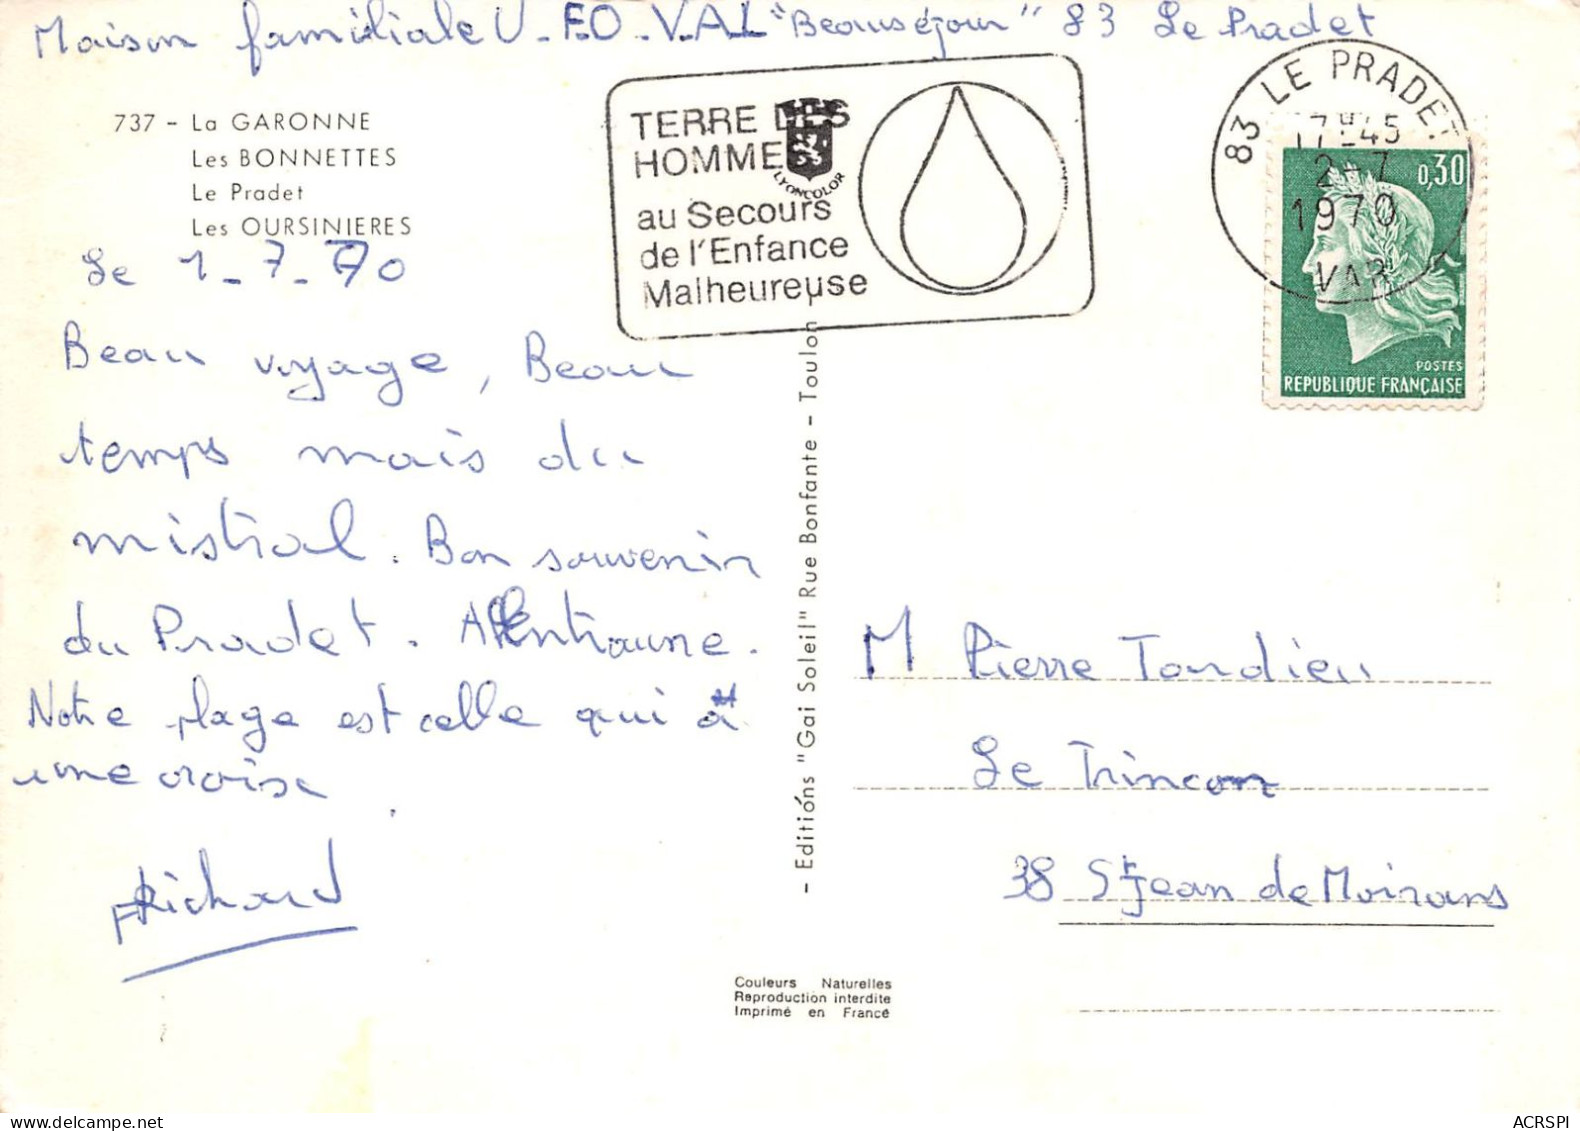 Maison familiale U.FO.VAL "Beauséjour" 83 Le Pradet
737 - La GARONNE
Les BONNETTES
Le Pradet
Les OURSINIERES
Le 1-7-70
Beau voyage, Beau
temps mais du
mistral. Bon souvenir
du Pradet.
Notre plage est celle qui a
une croix
Richard
TERRE DES
HOMMES
au Secours
de l'Enfance
Malheureuse
LYONCOLOR
83 LE PRADET
17H45
2-7
1970
VAR
0,30
POSTES
REPUBLIQUE FRANÇAISE
- Editións "Gai Soleil" Rue Bonfante - Toulon -
M Pierre Tardieu
Le Trincon
38 St Jean de Moirans
Couleurs Naturelles
Reproduction interdite
Imprimé en France
ACRSPI